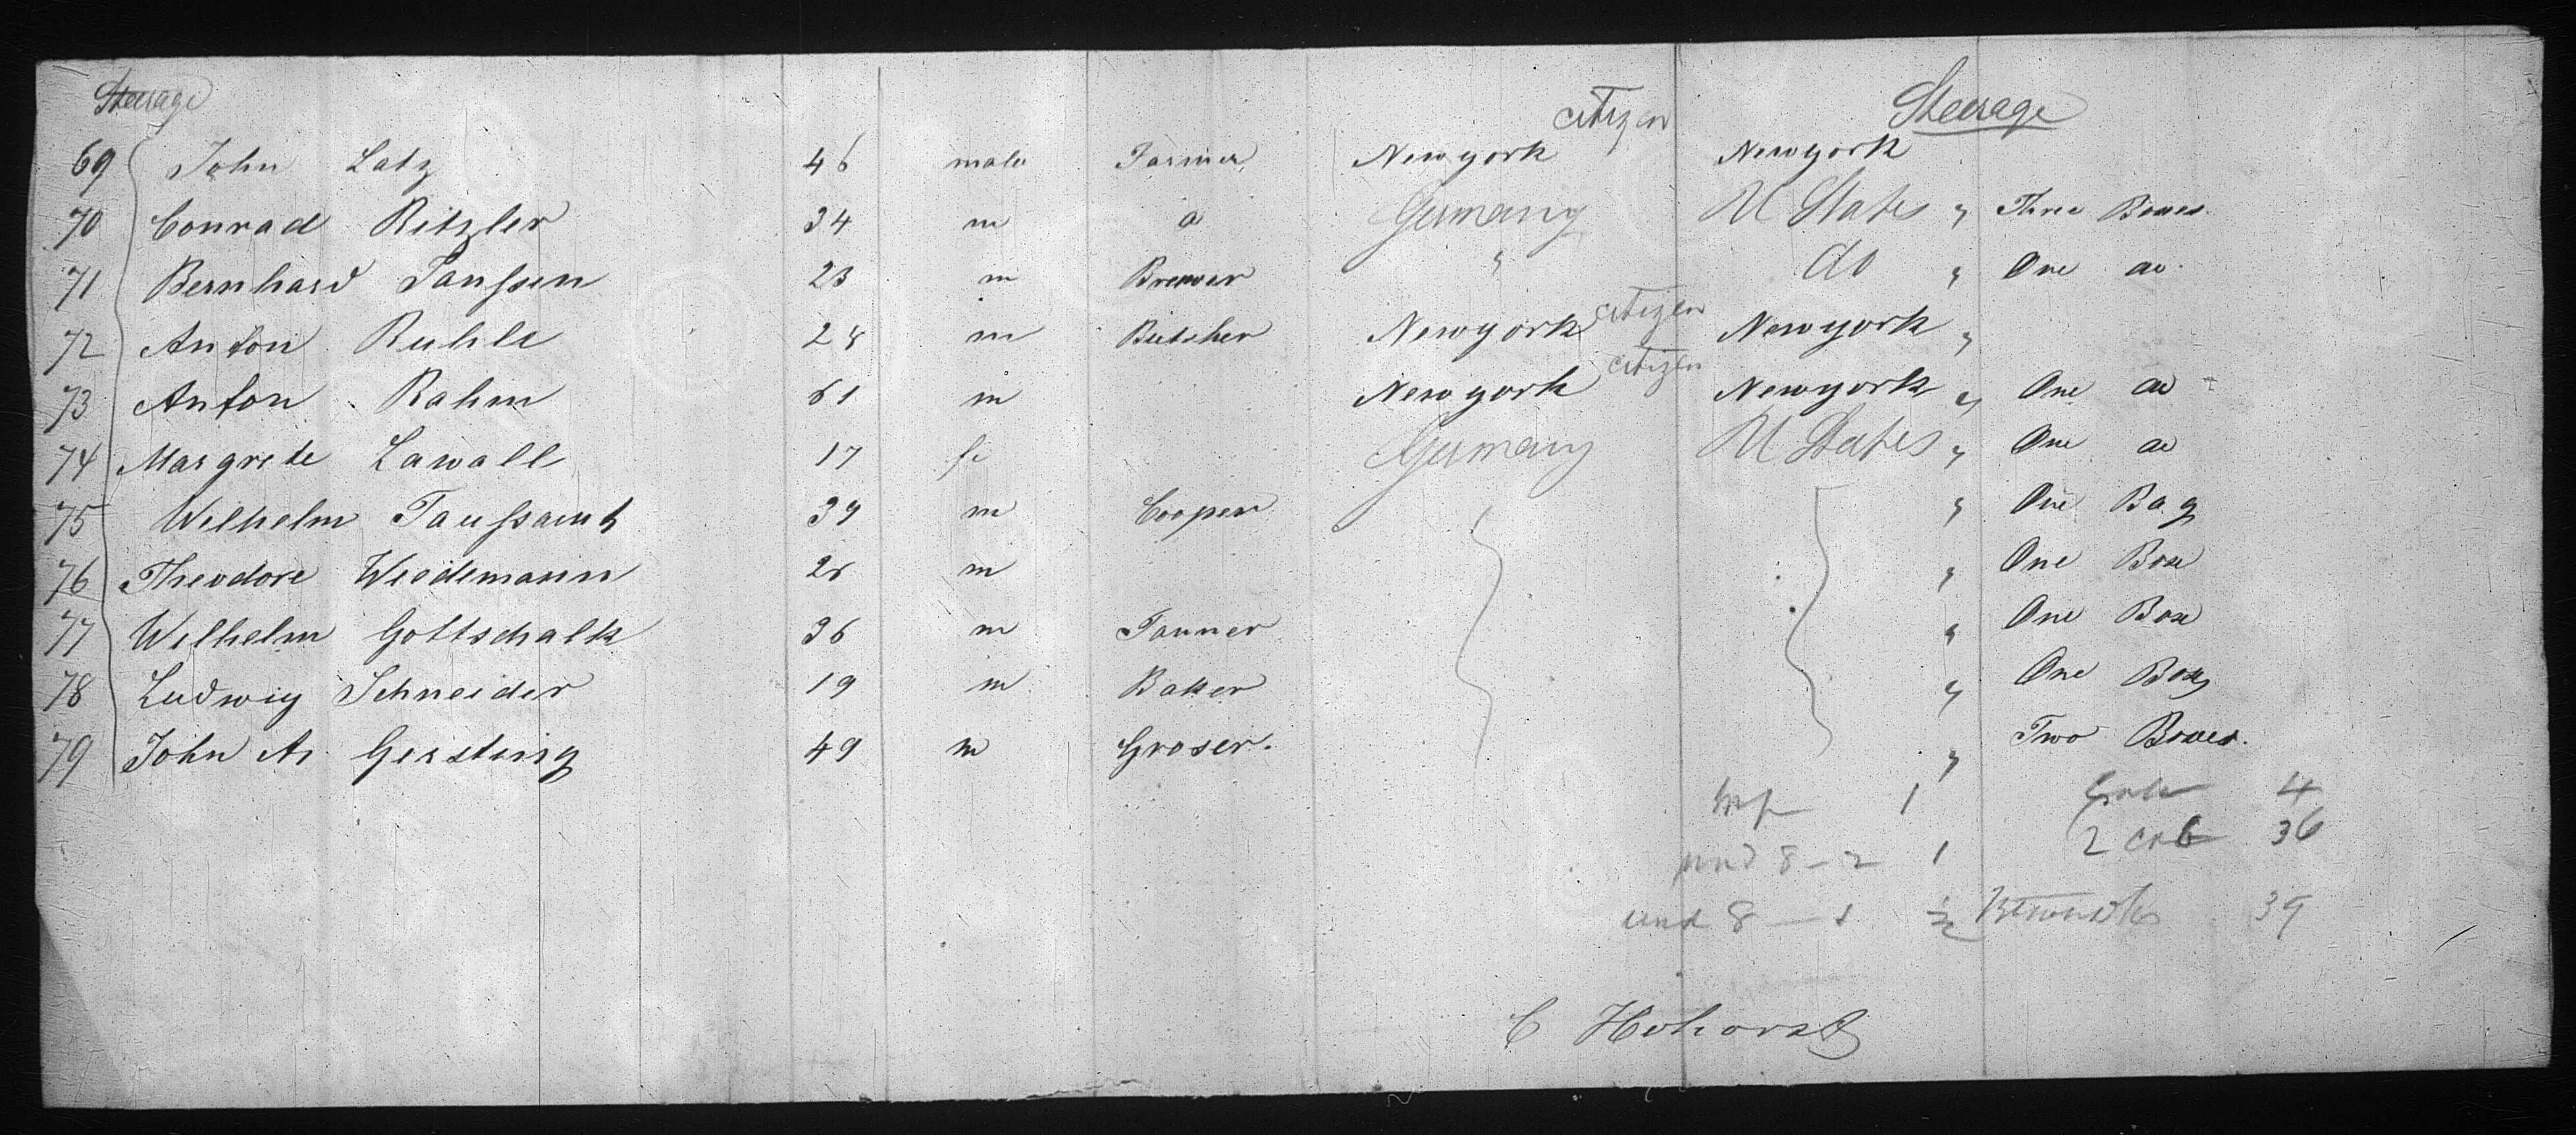 Steerage citizen Steerage
69 John Latz 46 male Farmer Newyork Newyork
70 Conrad Ritzler 34 m Germany U States " Three Boxes.
71 Bernhard Janssen 23 m Brewer " do " One do.
72 Anton Ruhle 28 m Butcher Newyork citizen Newyork "
73 Anton Rahm 61 m Newyork citizen Newyork " One do
74 Margrete Lawall 17 fe Germany U States " One do
75 Wilhelm Toussaint 39 m Cooper " One Bag
76 Theodore Weidemann 28 m " One Box
77 Wilhelm Gottschalk 36 m Tanner " One Box
78 Ludwig Schneider 19 m Baker " One Box
79 John A. Gersting 49 m Groser. " Two Boxes.
Inf 1 4
und 8 — 2 1 2 cab 36
und 8 — 1 39
C Hohorst